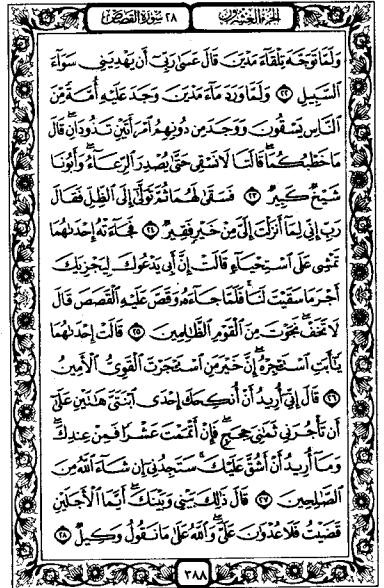 الجزء العشرون
٢٨ سورة القصص
وَلَمَّا تَوَجَّهَ تِلْقَاءَ مَدْيَنَ قَالَ عَسَىٰ رَبِّي أَن يَهْدِيَنِي سَوَاءَ
السَّبِيلِ ٢٢ وَلَمَّا وَرَدَ مَاءَ مَدْيَنَ وَجَدَ عَلَيْهِ أُمَّةً مِّنَ
النَّاسِ يَسْقُونَ وَوَجَدَ مِن دُونِهِمُ امْرَأَتَيْنِ تَذُودَانِ ۖ قَالَ
مَا خَطْبُكُمَا ۖ قَالَتَا لَا نَسْقِي حَتَّىٰ يُصْدِرَ الرِّعَاءُ ۖ وَأَبُونَا
شَيْخٌ كَبِيرٌ ٢٣ فَسَقَىٰ لَهُمَا ثُمَّ تَوَلَّىٰ إِلَى الظِّلِّ فَقَالَ
رَبِّ إِنِّي لِمَا أَنزَلْتَ إِلَيَّ مِنْ خَيْرٍ فَقِيرٌ ٢٤ فَجَاءَتْهُ إِحْدَاهُمَا
تَمْشِي عَلَى اسْتِحْيَاءٍ قَالَتْ إِنَّ أَبِي يَدْعُوكَ لِيَجْزِيَكَ
أَجْرَ مَا سَقَيْتَ لَنَا ۚ فَلَمَّا جَاءَهُ وَقَصَّ عَلَيْهِ الْقَصَصَ قَالَ
لَا تَخَفْ ۖ نَجَوْتَ مِنَ الْقَوْمِ الظَّالِمِينَ ٢٥ قَالَتْ إِحْدَاهُمَا
يَا أَبَتِ اسْتَأْجِرْهُ ۖ إِنَّ خَيْرَ مَنِ اسْتَأْجَرْتَ الْقَوِيُّ الْأَمِينُ
٢٦ قَالَ إِنِّي أُرِيدُ أَنْ أُنكِحَكَ إِحْدَى ابْنَتَيَّ هَاتَيْنِ عَلَىٰ
أَن تَأْجُرَنِي ثَمَانِيَ حِجَجٍ ۖ فَإِنْ أَتْمَمْتَ عَشْرًا فَمِنْ عِندِكَ ۖ
وَمَا أُرِيدُ أَنْ أَشُقَّ عَلَيْكَ ۚ سَتَجِدُنِي إِن شَاءَ اللَّهُ مِنَ
الصَّالِحِينَ ٢٧ قَالَ ذَٰلِكَ بَيْنِي وَبَيْنَكَ ۖ أَيَّمَا الْأَجَلَيْنِ
قَضَيْتُ فَلَا عُدْوَانَ عَلَيَّ ۖ وَاللَّهُ عَلَىٰ مَا نَقُولُ وَكِيلٌ ٢٨
٣٨٨